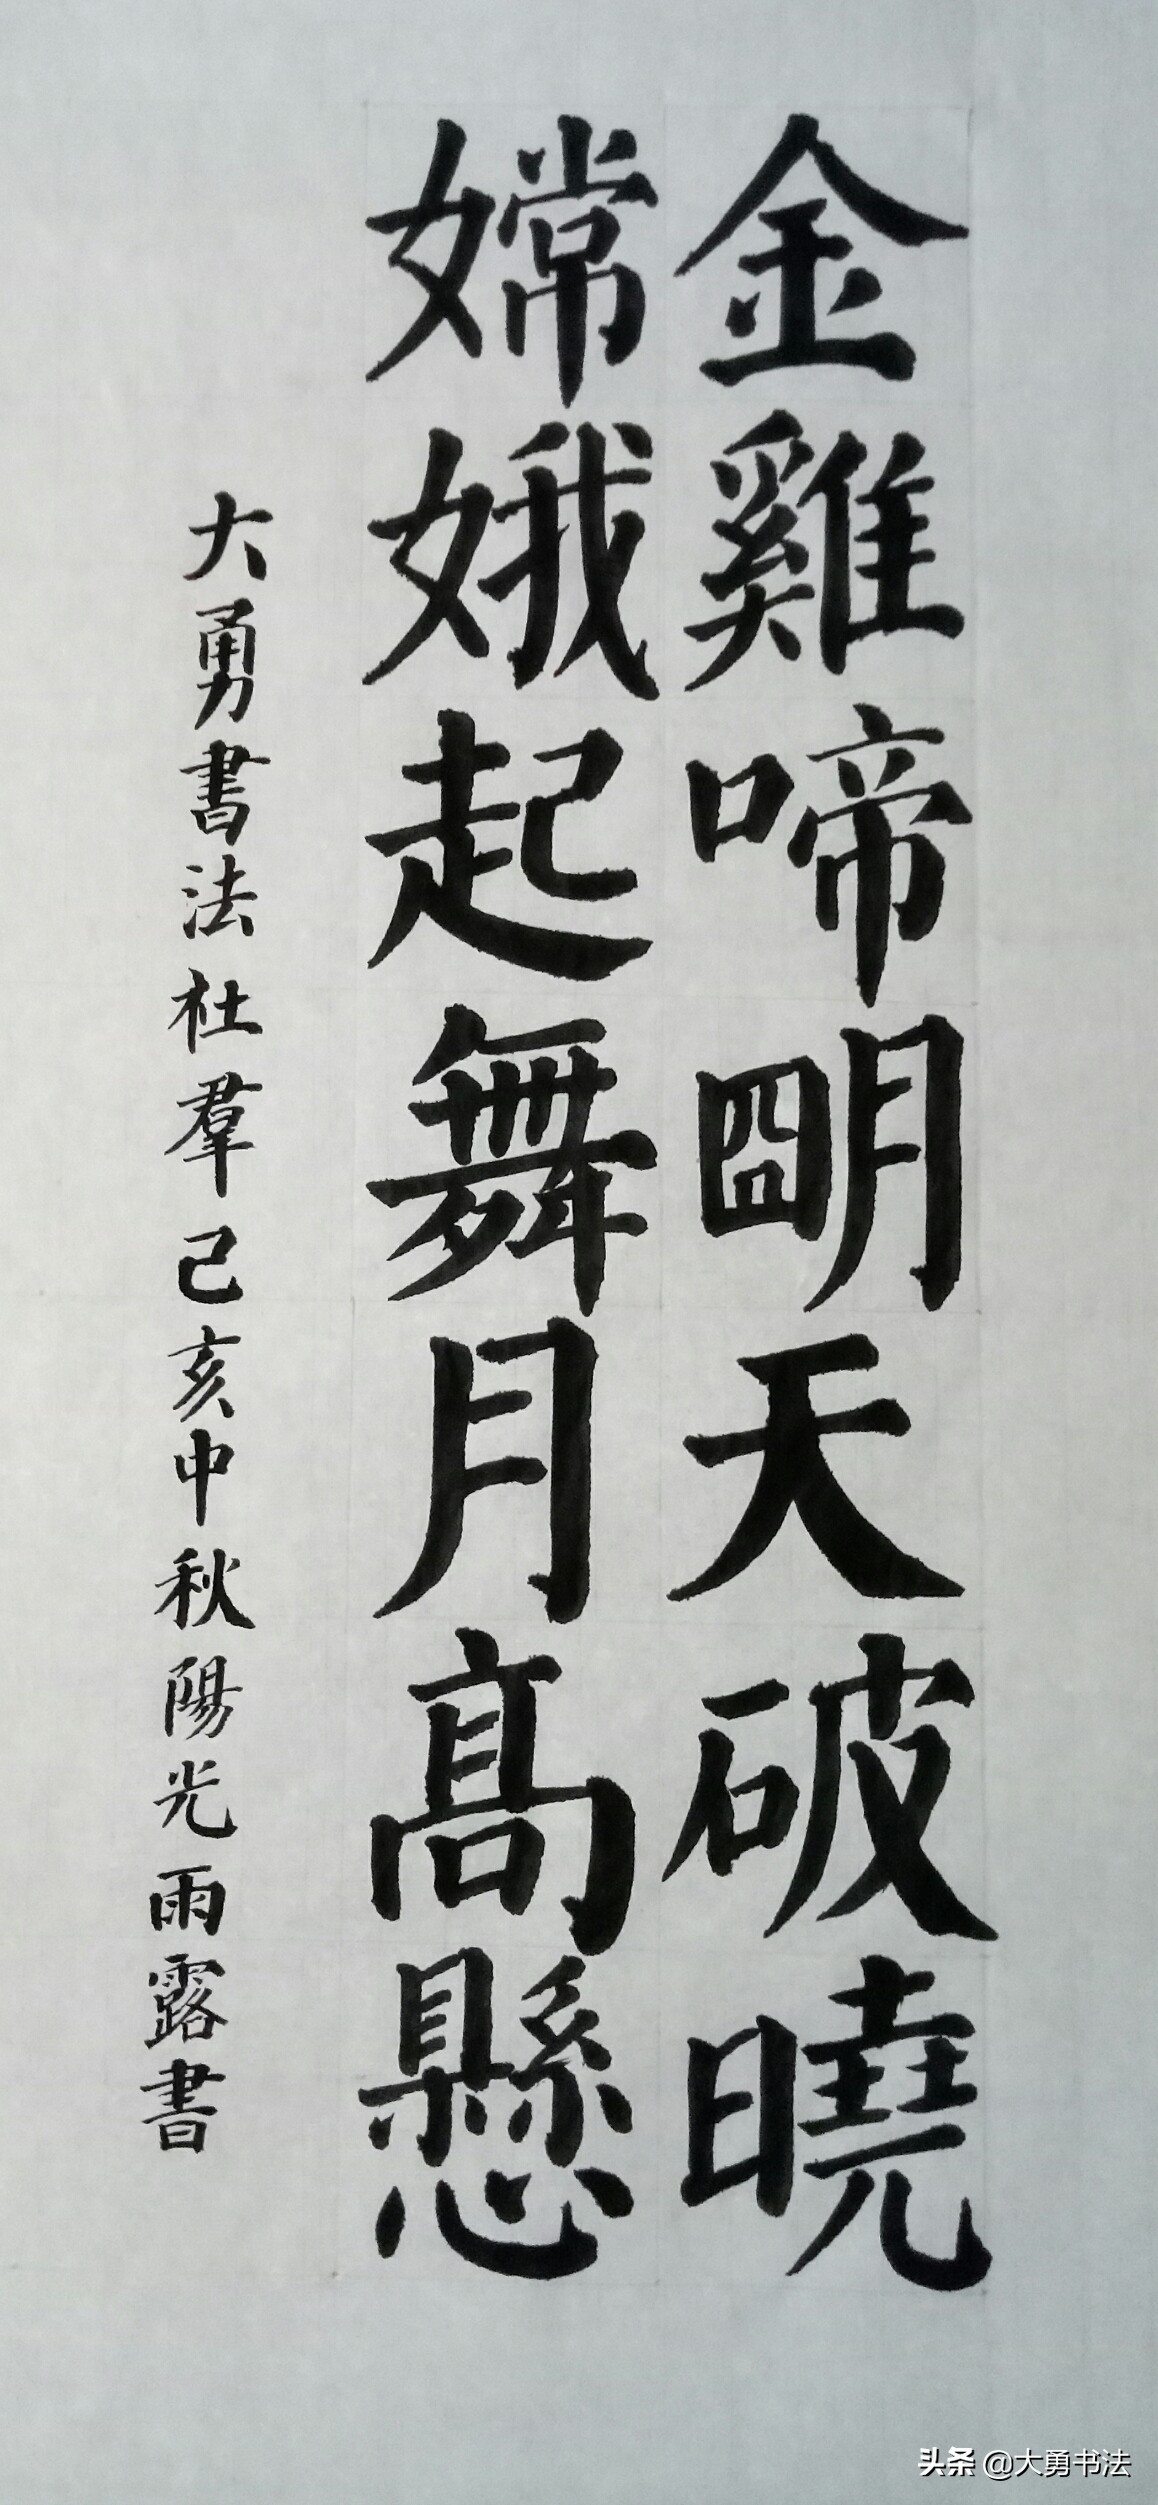 金雞啼朙天破曉
嫦娥起舞月髙懸
大勇書法社羣己亥中秋陽光雨露書
头条 @大勇书法